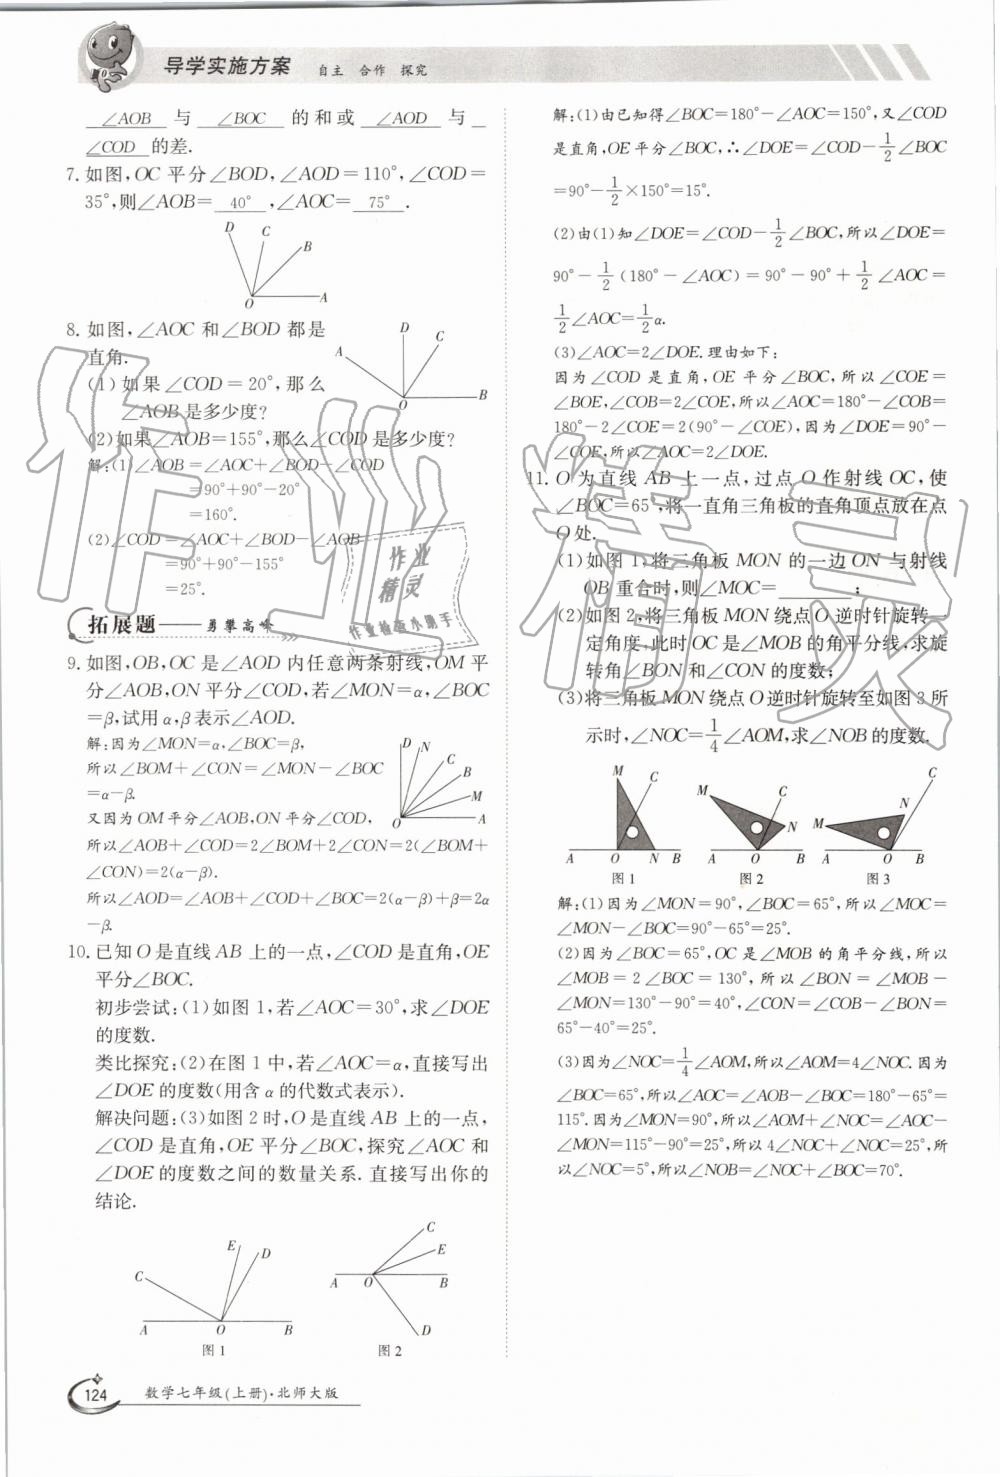 导学实施方案 自主 合作 探究
∠AOB 与 ∠BOC 的和或 ∠AOD 与
∠COD 的差.
7. 如图,OC 平分∠BOD,∠AOD=110°,∠COD=
35°,则∠AOB= 40° ,∠AOC= 75° .
D C B
O A
8. 如图,∠AOC 和∠BOD 都是
直角.
(1)如果∠COD=20°,那么
∠AOB 是多少度?
(2)如果∠AOB=155°,那么∠COD 是多少度?
D C
A
O B
解:(1)∠AOB=∠AOC+∠BOD-∠COD
=90°+90°-20°
=160°.
(2)∠COD=∠AOC+∠BOD-∠AOB
=90°+90°-155°
=25°.
拓展题——勇攀高峰
9. 如图,OB,OC 是∠AOD 内任意两条射线,OM 平
分∠AOB,ON 平分∠COD,若∠MON=α,∠BOC
=β,试用 α,β 表示∠AOD.
解:因为∠MON=α,∠BOC=β,
所以∠BOM+∠CON=∠MON-∠BOC
=α-β.
又因为 OM 平分∠AOB,ON 平分∠COD,
所以∠AOB+∠COD=2∠BOM+2∠CON=2(∠BOM+
∠CON)=2(α-β).
所以∠AOD=∠AOB+∠COD+∠BOC=2(α-β)+β=2α
-β.
D N
C
B
M
O A
10. 已知 O 是直线 AB 上的一点,∠COD 是直角,OE
平分∠BOC.
初步尝试:(1)如图 1,若∠AOC=30°,求∠DOE
的度数.
类比探究:(2)在图 1 中,若∠AOC=α,直接写出
∠DOE 的度数(用含 α 的代数式表示).
解决问题:(3)如图 2 时,O 是直线 AB 上的一点,
∠COD 是直角,OE 平分∠BOC,探究∠AOC 和
∠DOE 的度数之间的数量关系. 直接写出你的
结论.
E D
C
A O B
图 1
C
E
A O B
D
图 2
解:(1)由已知得∠BOC=180°-∠AOC=150°,又∠COD
是直角,OE 平分∠BOC,∴∠DOE=∠COD-1/2∠BOC
=90°-1/2×150°=15°.
(2)由(1)知∠DOE=∠COD-1/2∠BOC,所以∠DOE=
90°-1/2(180°-∠AOC)=90°-90°+1/2∠AOC=
1/2∠AOC=1/2α.
(3)∠AOC=2∠DOE.理由如下:
因为∠COD 是直角,OE 平分∠BOC,所以∠COE=
∠BOE,∠COB=2∠COE,所以∠AOC=180°-∠COB=
180°-2∠COE=2(90°-∠COE),因为∠DOE=90°-
∠COE,所以∠AOC=2∠DOE.
11. O 为直线 AB 上一点,过点 O 作射线 OC,使
∠BOC=65°,将一直角三角板的直角顶点放在点
O 处.
(1)如图 1,将三角板 MON 的一边 ON 与射线
OB 重合时,则∠MOC= ;
(2)如图 2,将三角板 MON 绕点 O 逆时针旋转一
定角度,此时 OC 是∠MOB 的角平分线,求旋
转角∠BON 和∠CON 的度数;
(3)将三角板 MON 绕点 O 逆时针旋转至如图 3 所
示时,∠NOC=1/4∠AOM,求∠NOB 的度数.
M C
A O N B
图 1
M C
N
A O B
图 2
C
N
M
A O B
图 3
解:(1)因为∠MON=90°,∠BOC=65°,所以∠MOC=
∠MON-∠BOC=90°-65°=25°.
(2)因为∠BOC=65°,OC 是∠MOB 的角平分线,所以
∠MOB=2∠BOC=130°,所以∠BON=∠MOB-
∠MON=130°-90°=40°,∠CON=∠COB-∠BON=
65°-40°=25°.
(3)因为∠NOC=1/4∠AOM,所以∠AOM=4∠NOC.因为
∠BOC=65°,所以∠AOC=∠AOB-∠BOC=180°-65°=
115°.因为∠MON=90°,所以∠AOM+∠NOC=∠AOC-
∠MON=115°-90°=25°,所以 4∠NOC+∠NOC=25°,所
以∠NOC=5°,所以∠NOB=∠NOC+∠BOC=70°.
作业精灵
作业
精灵
作业检查小助手
124 数学七年级(上册)·北师大版